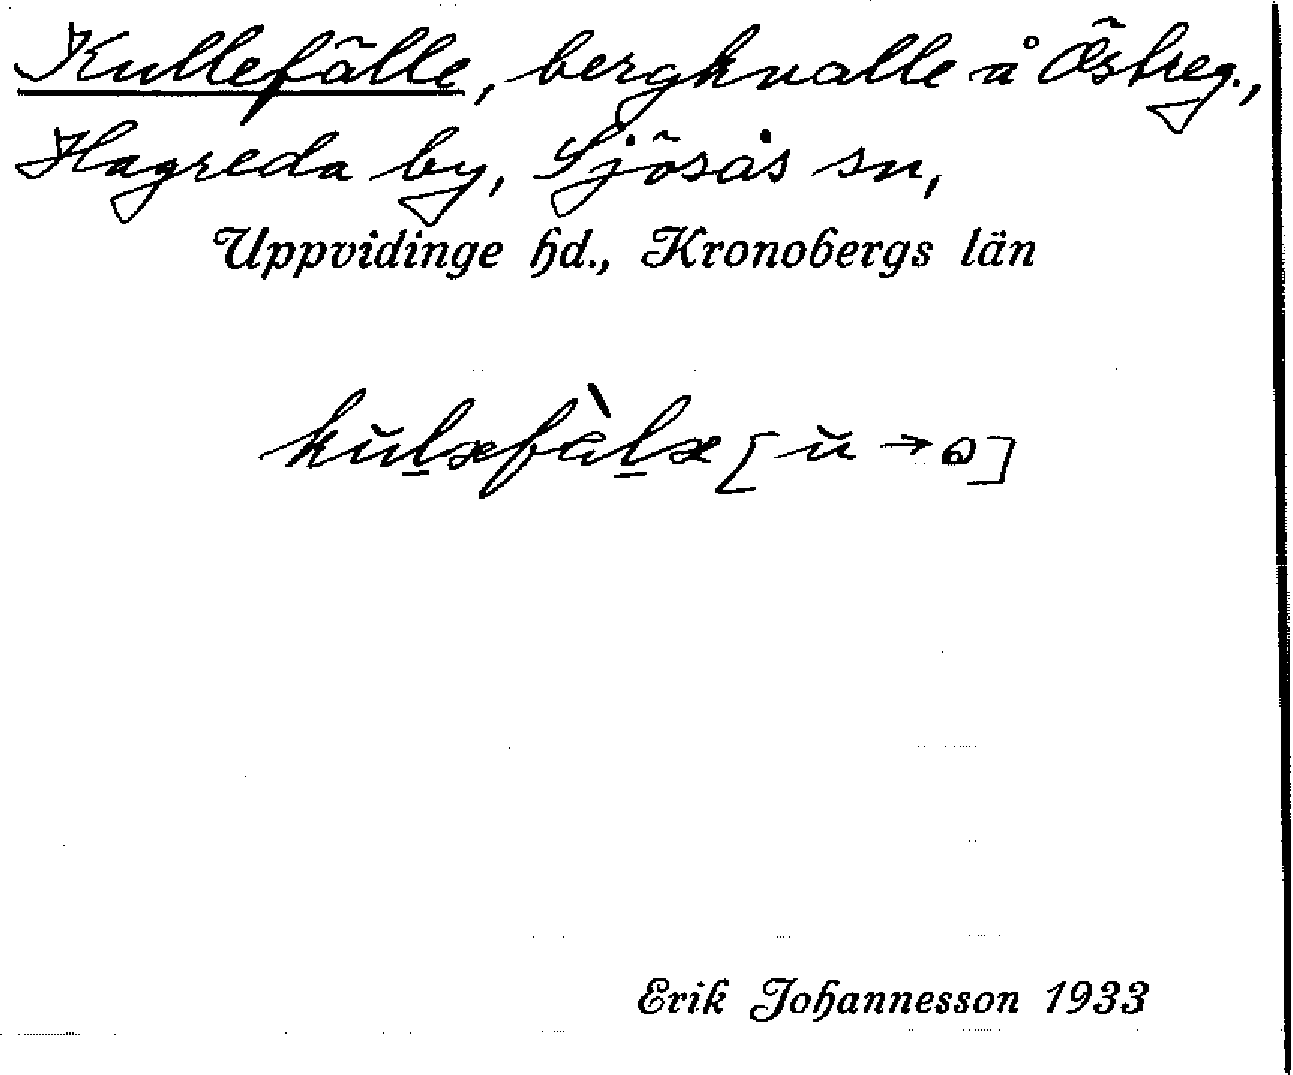 Kullefälle, bergkulle å Östreg.,
Hagreda by, Sjösås sn,
Uppvidinge hd., Kronobergs län
Erik Johannesson 1933